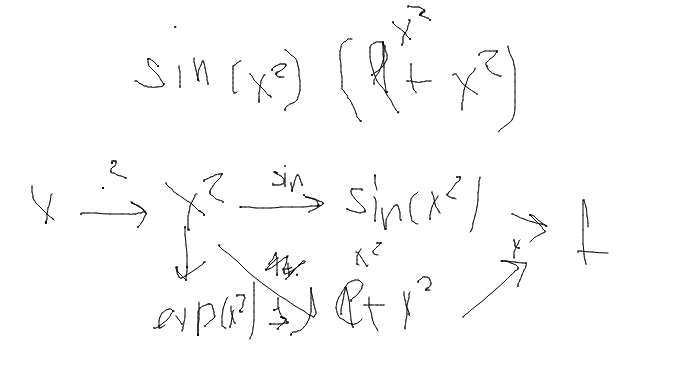 sin(x²) (e^x² + x²)
x →^.2 x² →^sin sin(x²) →
exp(x²) → e^x² + x² →^x